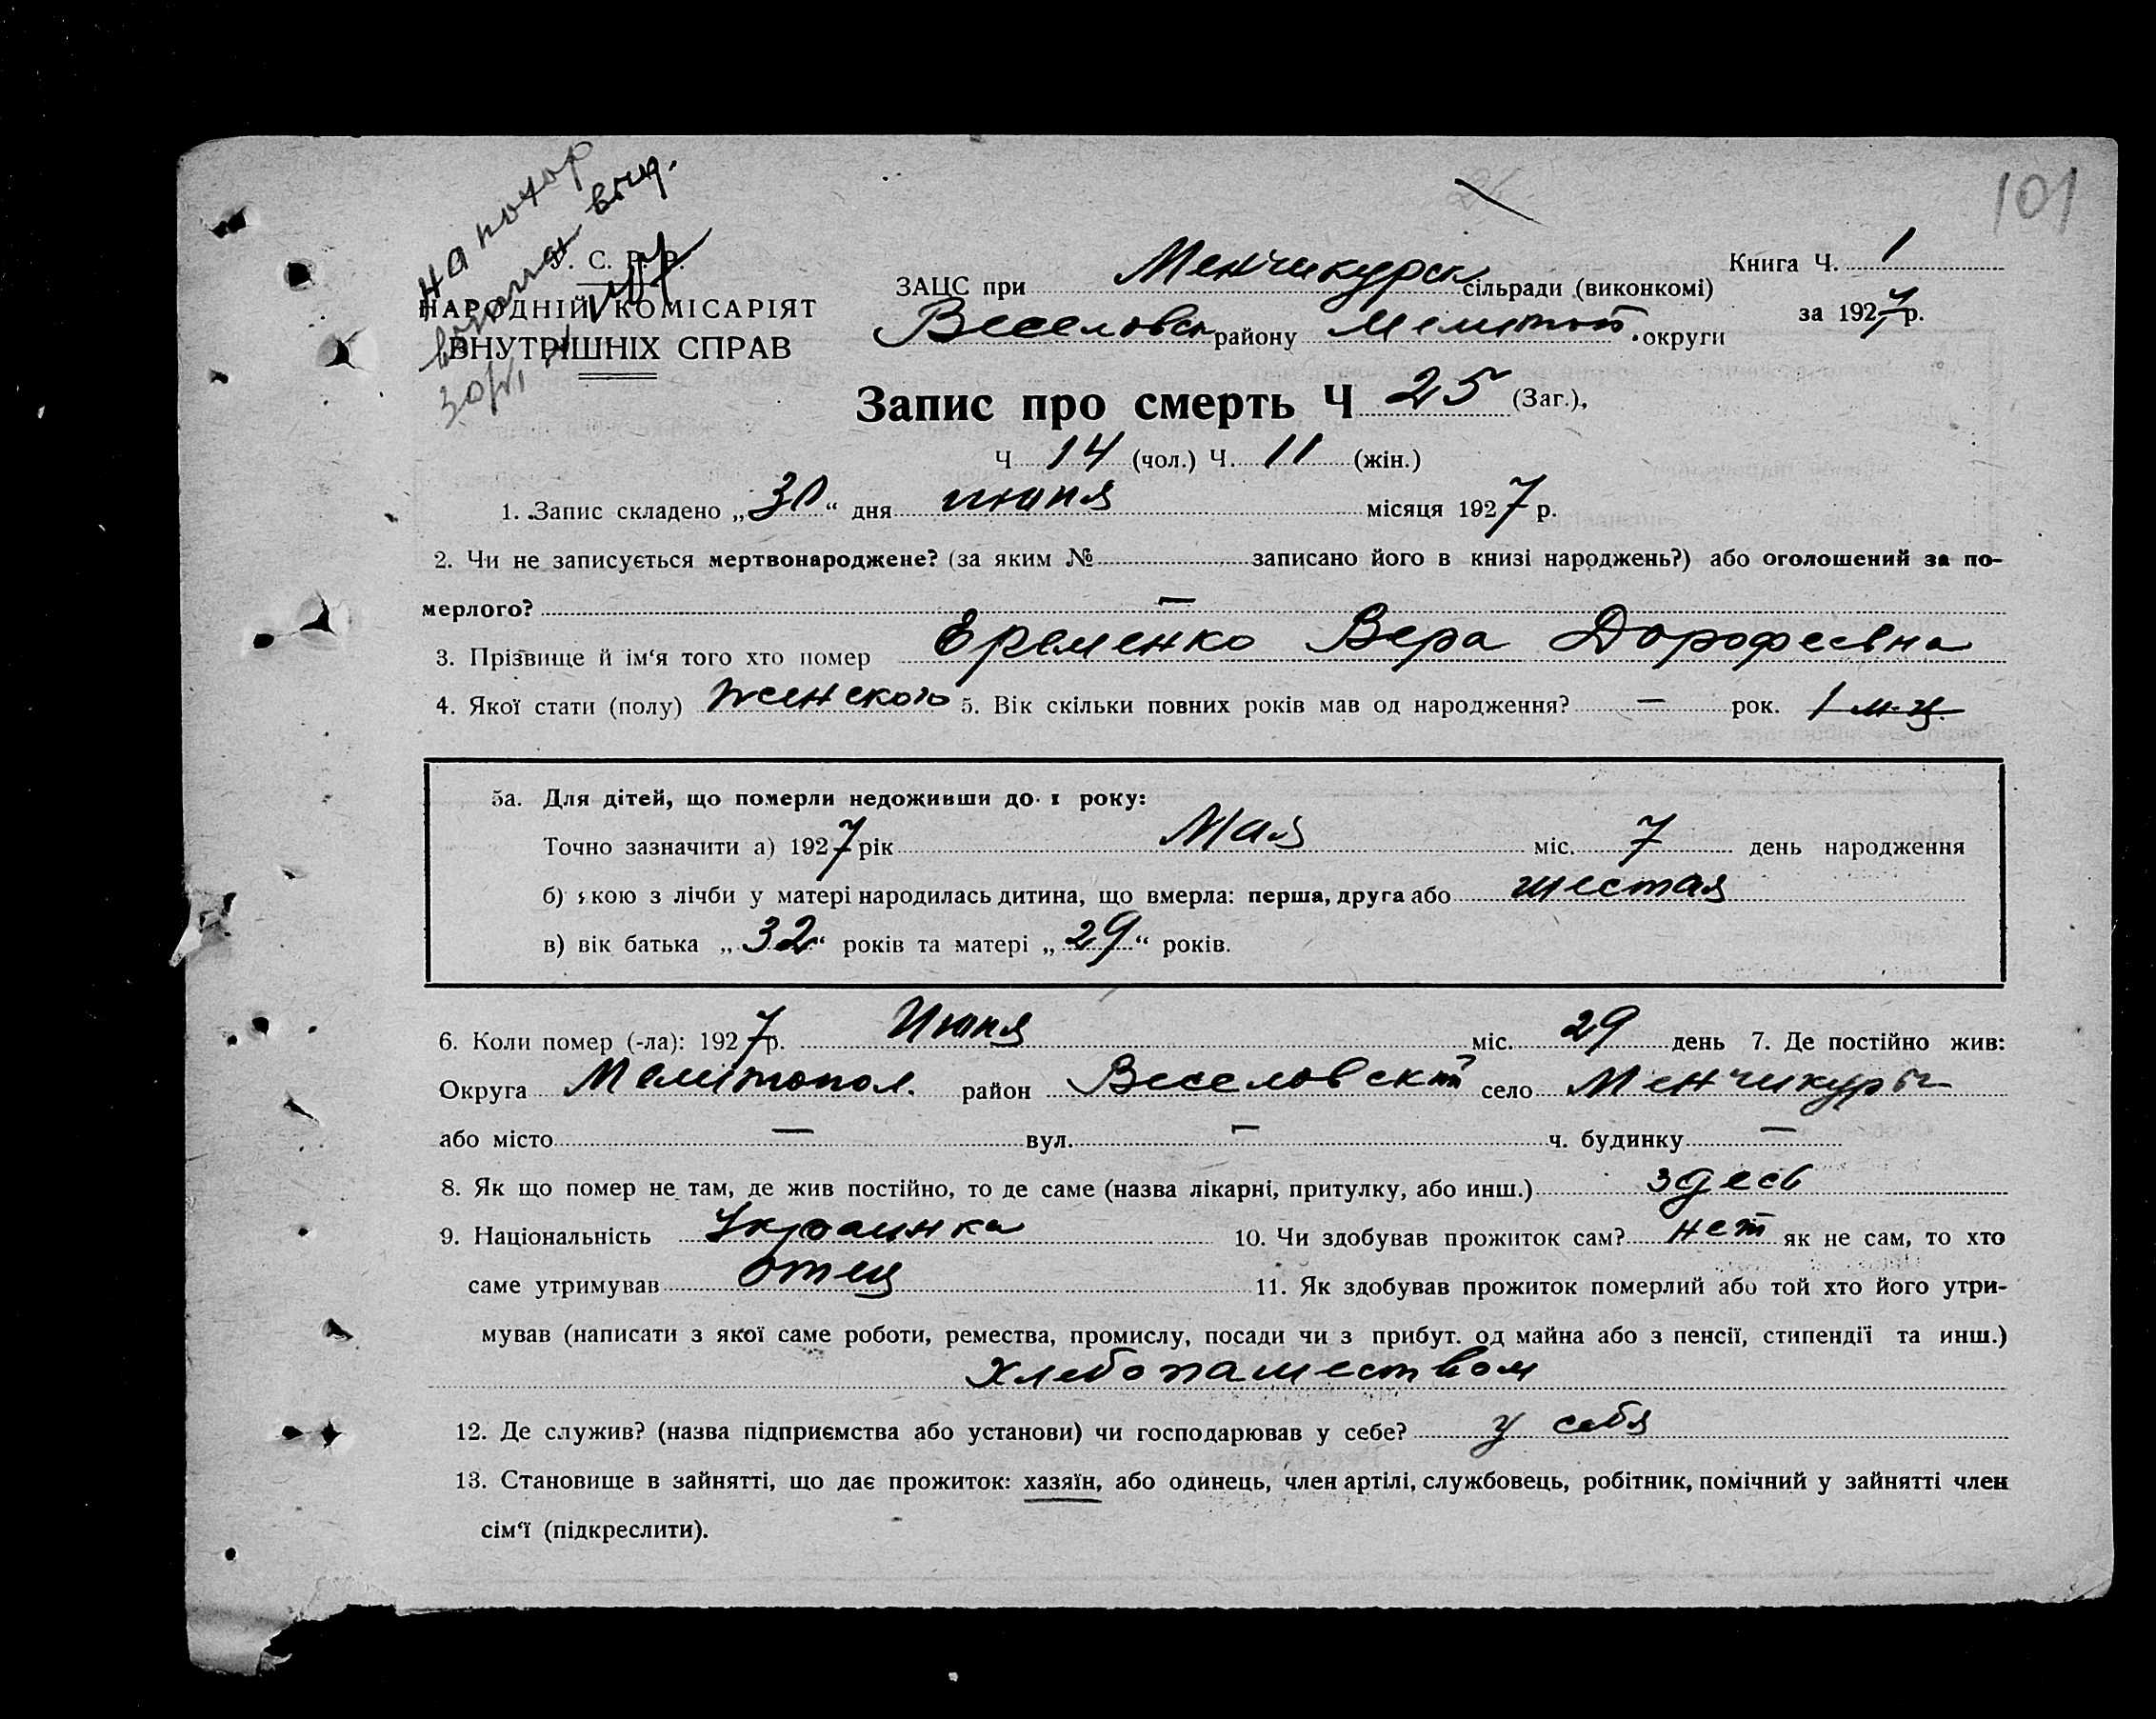 101
на похор
выд.
30/VI
У. С. Р. Р.
НАРОДНІЙ КОМІСАРІЯТ
ВНУТРІШНІХ СПРАВ
Книга Ч. 1
за 1927 р.
ЗАЦС при Менчикурск сільради (виконкомі)
Веселовск району Мелитоп. округи
Запис про смерть Ч 25 (Заг.),
Ч 14 (чол.) Ч. 11 (жін.)
1. Запис складено „30“ дня июня місяця 1927 р.
2. Чи не записується мертвонароджене? (за яким № записано його в книзі народжень?) або оголошений за по-
мерлого? —
3. Прізвище й ім‘я того хто помер Еременко Вера Дорофеевна
4. Якої стати (полу) женского 5. Вік скільки повних років мав од народження? — рок. 1 м-ц.
5а. Для дітей, що померли недоживши до 1 року:
Точно зазначити а) 1927 рік Мая міс. 7 день народження
б) якою з лічби у матері народилась дитина, що вмерла: перша, друга або шестая
в) вік батька „32“ років та матері „29“ років.
6. Коли помер (-ла): 1927 р. Июня міс. 29 день 7. Де постійно жив:
Округа Мелитопол. район Веселовский село Менчикуры
або місто — вул. — ч. будинку —
8. Як що помер не там, де жив постійно, то де саме (назва лікарні, притулку, або инш.) здесь
9. Національність Украинка 10. Чи здобував прожиток сам? нет як не сам, то хто
саме утримував отец 11. Як здобував прожиток померлий або той хто його утри-
мував (написати з якої саме роботи, ремества, промислу, посади чи з прибут. од майна або з пенсії, стипендії та инш.)
хлебопашеством
12. Де служив? (назва підприємства або установи) чи господарював у себе? у себя
13. Становище в зайнятті, що дає прожиток: хазяїн, або одинець, член артілі, службовець, робітник, помічний у зайнятті член
сім‘ї (підкреслити).